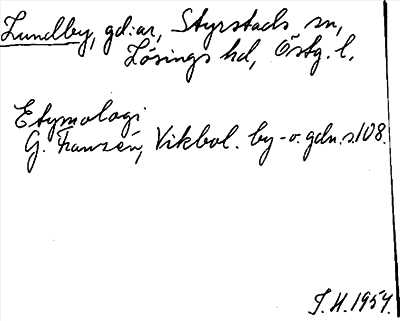 Lundby, gd:ar, Styrstads sn,
Lösings hd, Östg. l.
Etymologi
G. Franzén, Vikbol. by- o. gdn. s. 108.
T.H. 1954.